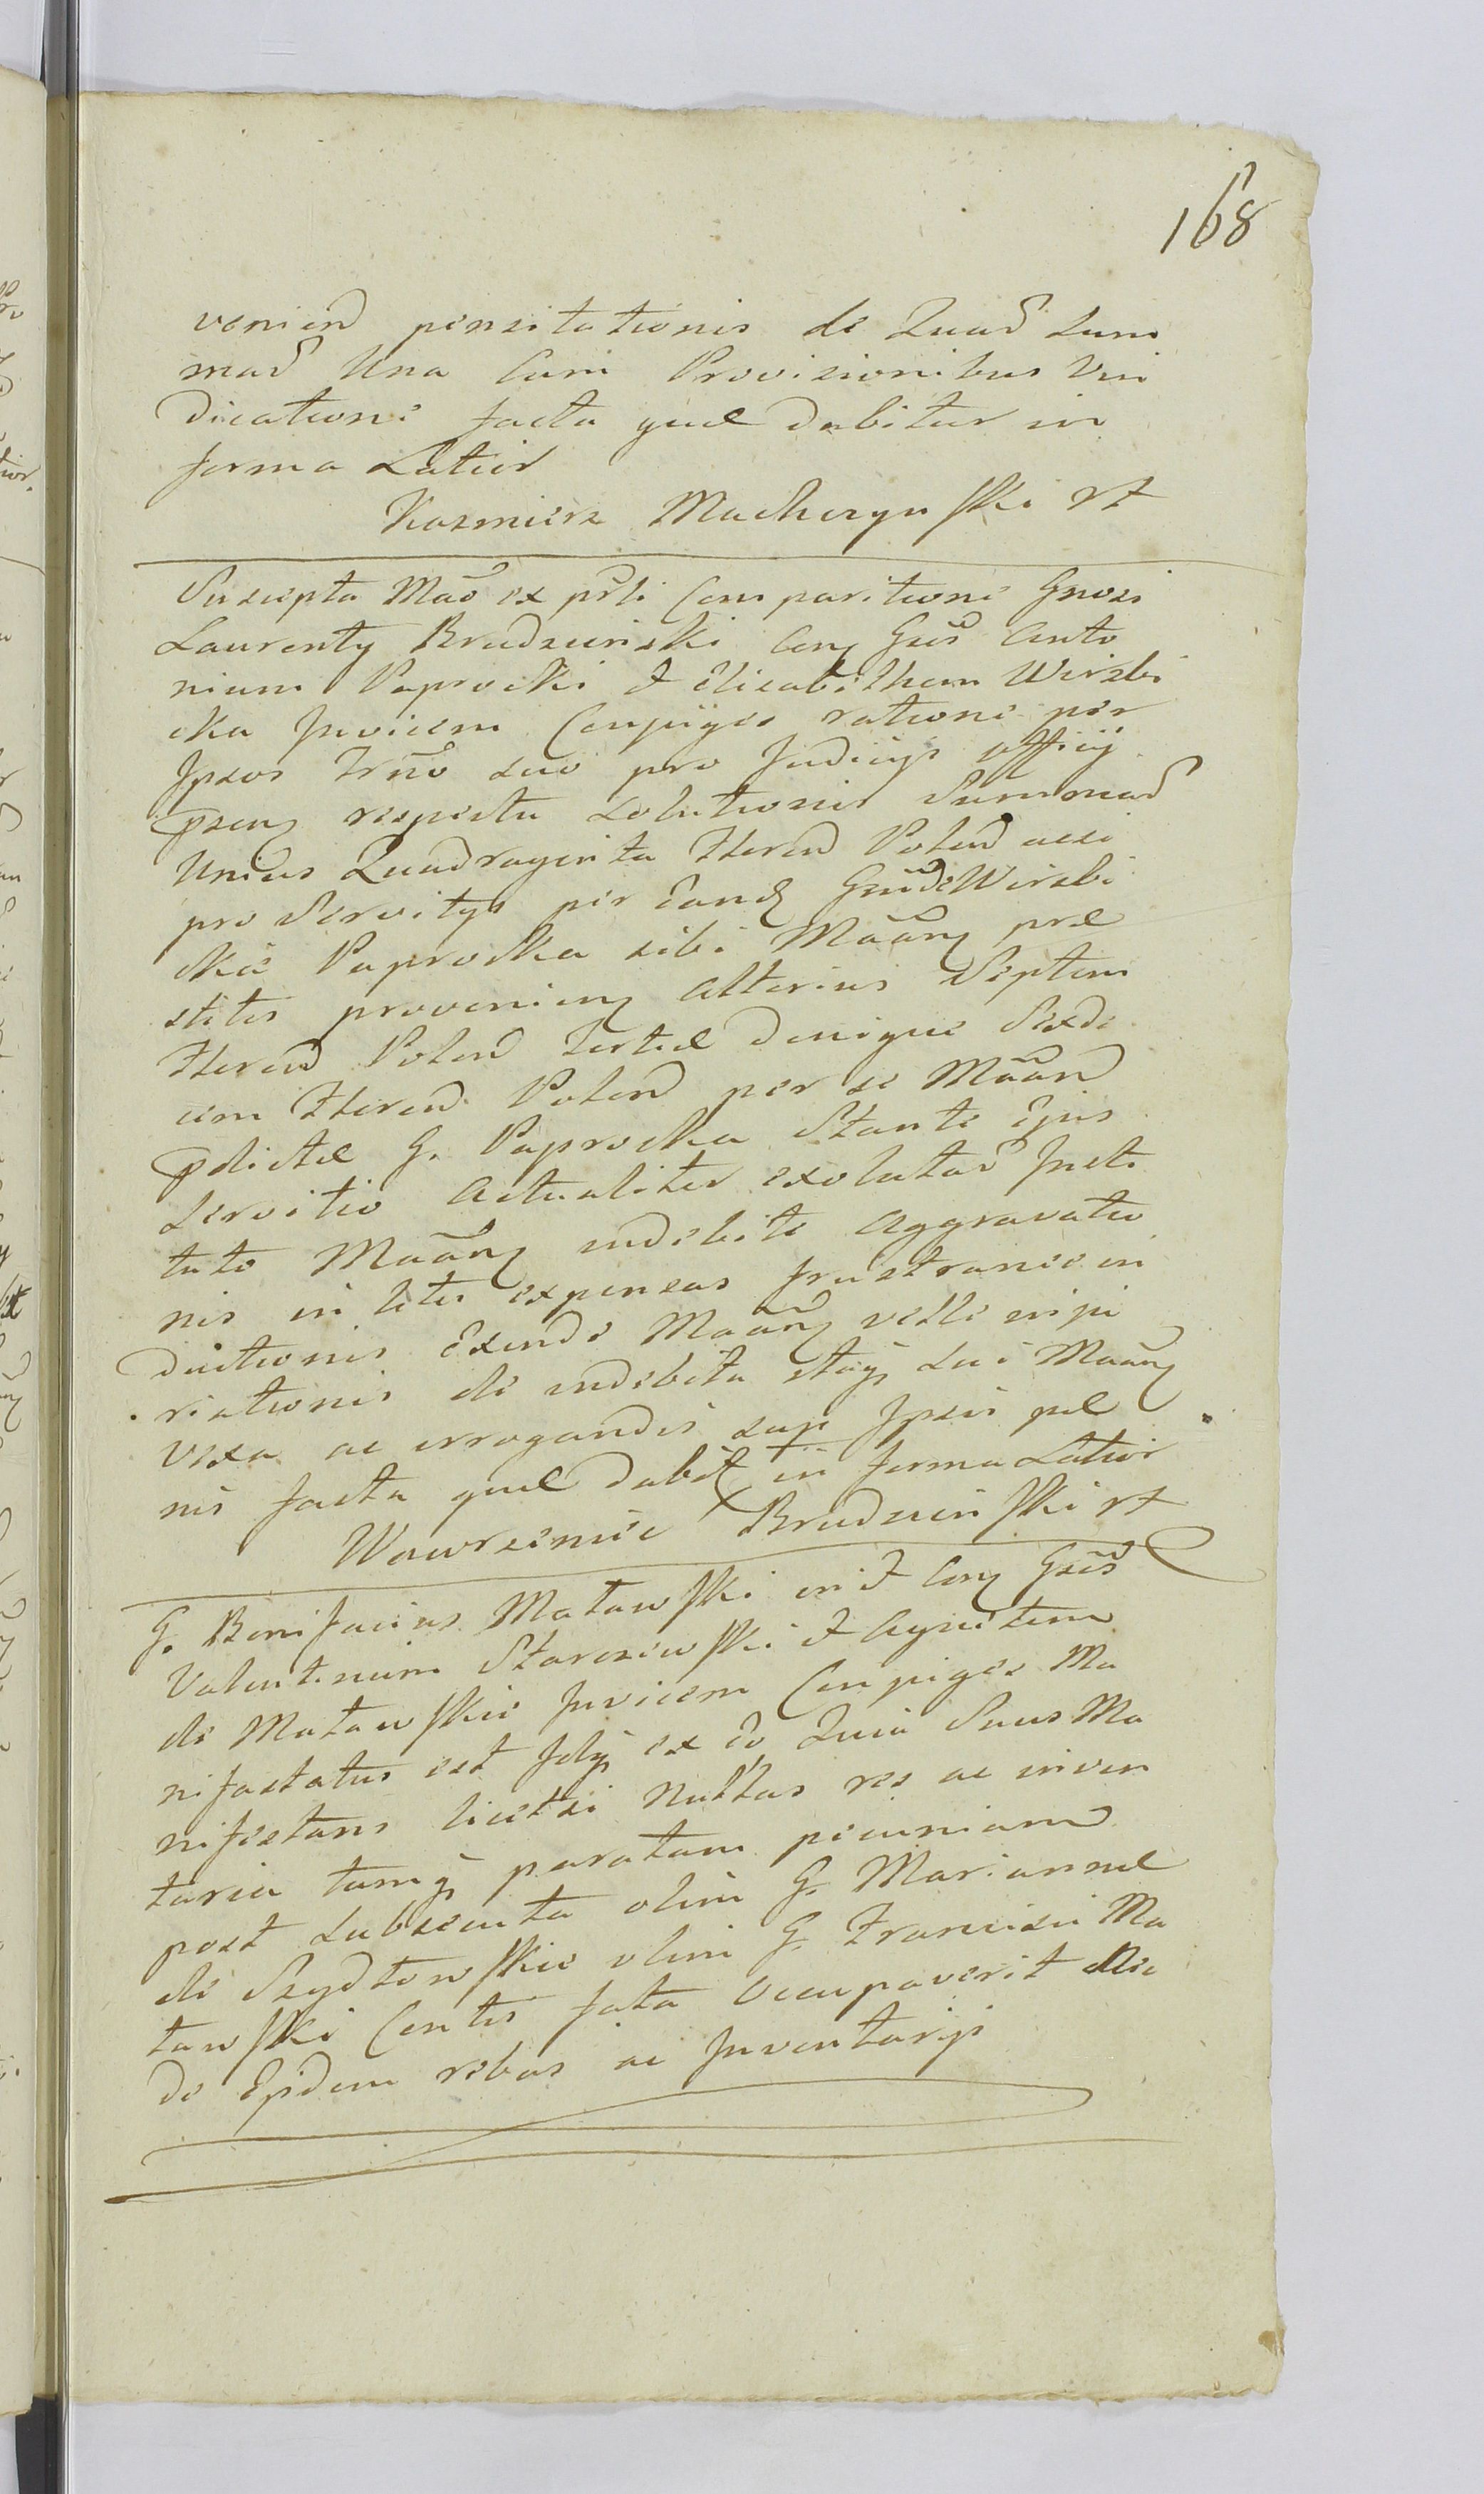 168
veniend pensitationis de Quad Sum
mad Una Cum Provisionibus Vin
dicatione facta quæ dabitur in
forma Latior
Kazmierz Machczynski rt
Suscepta Mão ex prli Comparitione Gnosi
Laurenty Brudzinski Con Gsos Anto
nium Paprocki & Elisabetham Wirzbi
cka Invicem Conjuges ratione per
Ipsos Trño suo pro Judicijs officij
psen respectu Solutionis Summad
Unius Quadraginta Floren Polon acsi
pro Servitys per Eand Gnosde Wirzbi
ckie Paprocka sibi Mãan præ
stitis provenien Alterius Septem
Floren Polon tertiæ denique Sexde
cim Floren Polon per se Mãan
pdictæ G. Paprocka Stante Ejus
Servitio Actualiter exolutar Insti
tuto Mãan indebite Aggravatio
nis in litis expensas frustranee in
ductionis Exinde Mãan velle inpi
riationis de indebita stoq sui Mãan
vexa ac irrogandis sup Ipsis pæ
nis facta quæ dabit in forma Latior
Wawrzeniec Brudzinski rt
G. Bonifacius Matawski in & Con Gsos
Valentinum Starczewski & Agnetem
de Matawskie Invicem Conjuges Ma
nifestatus est Idq ex eo Quia Suus Ma
nifestans licetsi Nullas res ac inven
taria tamq paratam pecuniam
post Subsecuta olim G. Mariannæ
de Szydlowskie olim G. Francisci Ma
tawski Contis fata Occupaverit Nec
de Ejsdem rebus ac Inventarijs